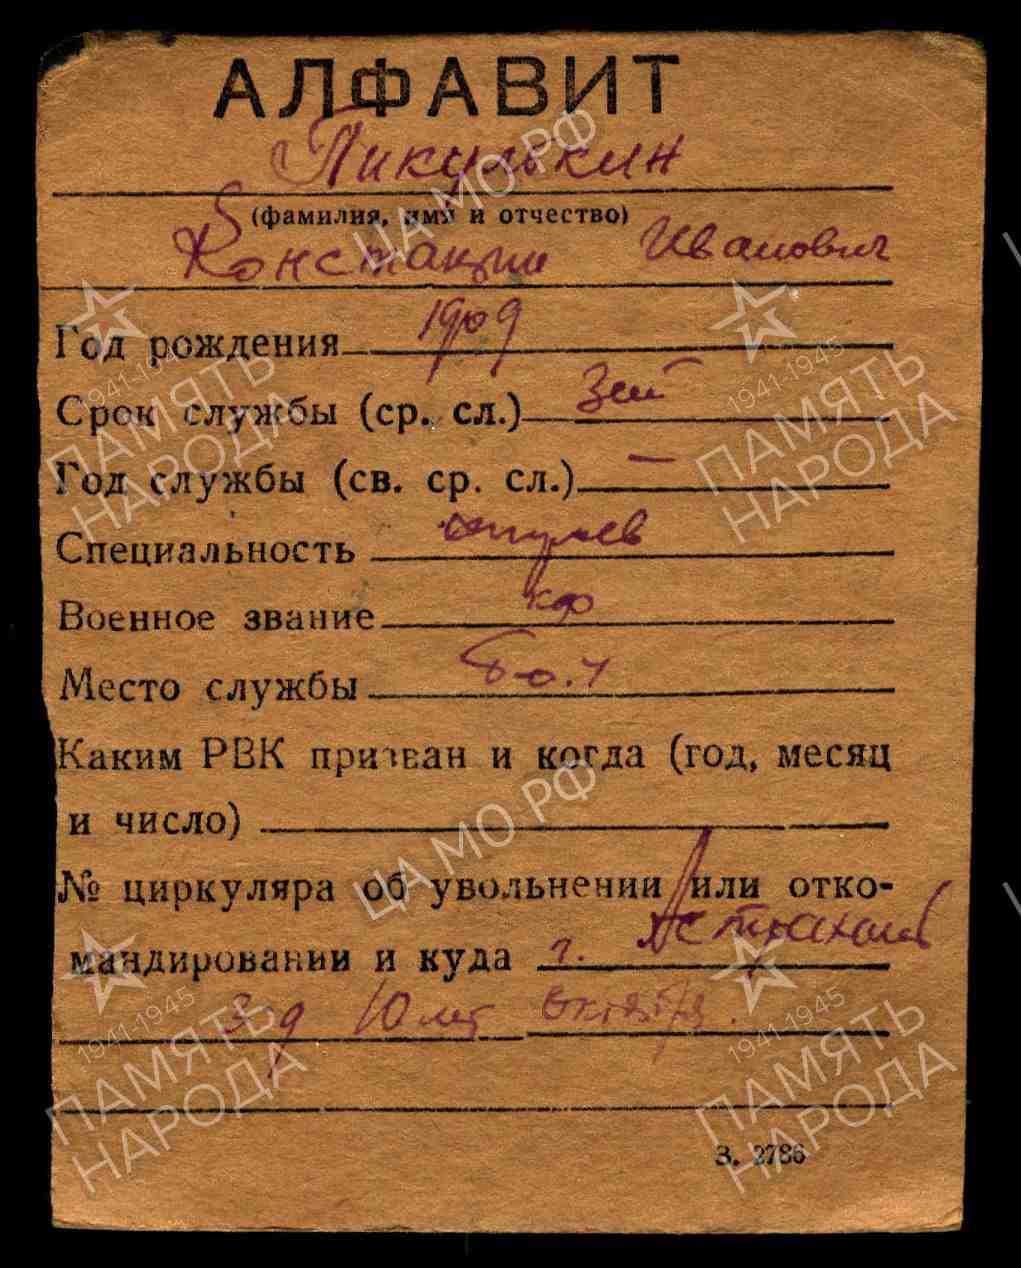 АЛФАВИТ
Пикулькин
(фамилия, имя и отчество)
Константин Иванович
Год рождения 1909
Срок службы (ср. сл.)
Год службы (св. ср. сл.) —
Специальность
Военное звание
Место службы
Каким РВК призван и когда (год, месяц
и число)
№ циркуляра об увольнении или отко-
мандировании и куда г. Астрахань
10 лет Октября.
З. 2786
ЦА МО РФ
ЦА МО РФ
1941-1945
ПАМЯТЬ
НАРОДА
1941-1945
ПАМЯТЬ
НАРОДА
1941-1945
ПАМЯТЬ
НАРОДА
1941-1945
ПАМЯТЬ
НАРОДА